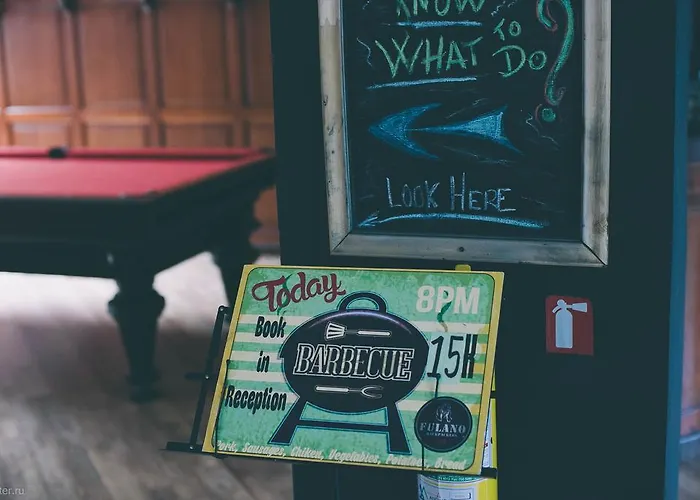 KNOW
WHAT TO DO?
LOOK HERE
Today
8PM
Book
in
Reception
BARBECUE
15K
FULANO
Pork, Sausages, Chiken, Vegetables, Potatoes, Bread
ter.ru